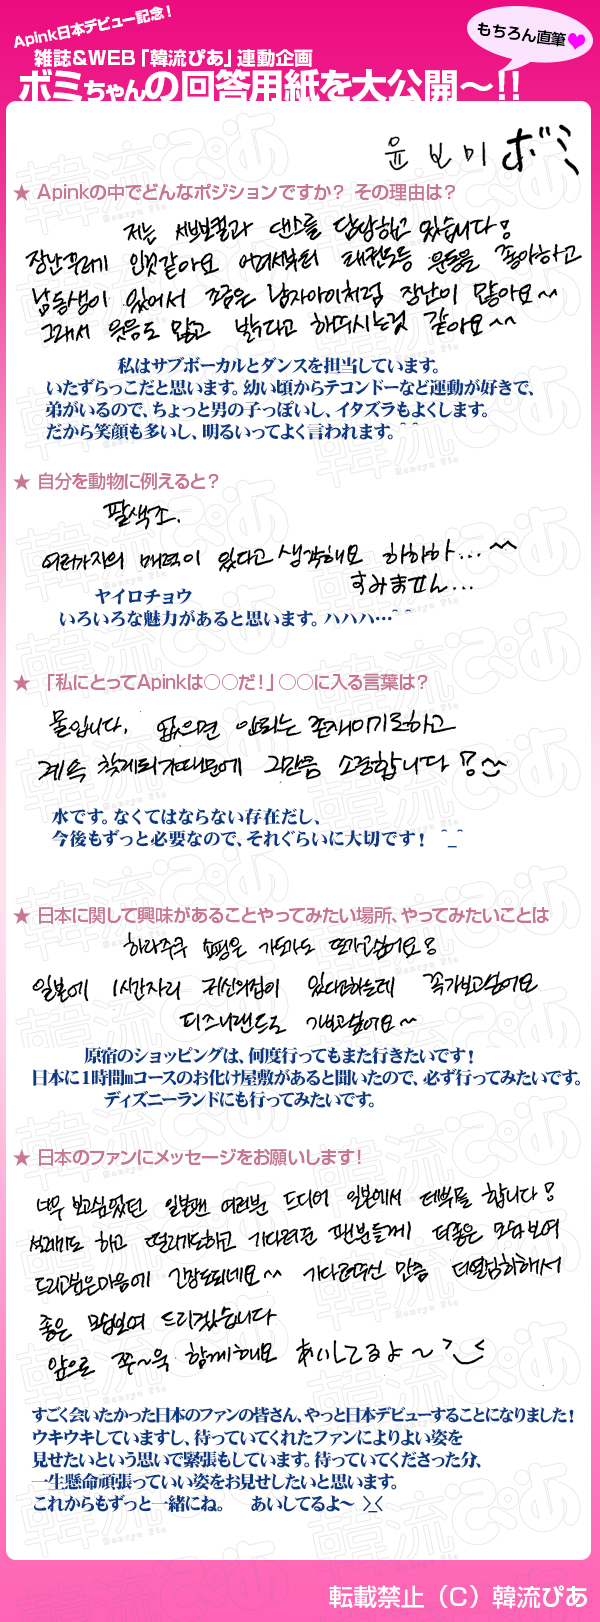 Apink日本デビュー記念！
雑誌&WEB「韓流ぴあ」連動企画
もちろん直筆
ボミちゃんの回答用紙を大公開～!!
윤보미 ボミ
★ Apinkの中でどんなポジションですか？ その理由は？
저는 서브보컬과 댄스를 담당하고 있습니다!
장난꾸러기 인것같아요 어려서부터 태권도등 운동을 좋아하고
남동생이 있어서 조금은 남자아이처럼 장난이 많아요~~
그래서 웃음도 많고 밝다고 해주시는것 같아요^^
私はサブボーカルとダンスを担当しています。
いたずらっこだと思います。幼い頃からテコンドーなど運動が好きで、
弟がいるので、ちょっと男の子っぽいし、イタズラもよくします。
だから笑顔も多いし、明るいってよく言われます。^ ^
★ 自分を動物に例えると？
팔색조.
여러가지의 매력이 있다고 생각해요 하하하... ^^
すみません...
ヤイロチョウ
いろいろな魅力があると思います。ハハハ…^ ^
★ 「私にとってApinkは○○だ！」○○に入る言葉は？
물입니다. 없으면 안되는 존재이기도하고
계속 찾게되기때문에 그만큼 소중합니다!
水です。なくてはならない存在だし、
今後もずっと必要なので、それぐらいに大切です！ ^_^
★ 日本に関して興味があることやってみたい場所、やってみたいことは
하라주쿠 쇼핑은 가도가도 또가고싶어요!
일본에 1시간짜리 귀신의집이 있다고하는데 꼭가보고싶어요
디즈니랜드도 가보고싶어요~
原宿のショッピングは、何度行ってもまた行きたいです！
日本に1時間mコースのお化け屋敷があると聞いたので、必ず行ってみたいです。
ディズニーランドにも行ってみたいです。
★ 日本のファンにメッセージをお願いします！
너무 보고싶었던 일본팬 여러분 드디어 일본에서 데뷔를 합니다!
설레기도 하고 떨리기도하고 기다려준 팬분들께 더좋은 모습보여
드리고싶은마음에 긴장도되네요^^ 기다려주신 만큼 더열심히해서
좋은 모습보여 드리겠습니다
앞으로 쭈~욱 함께해요 あいしてるよ～ >_<
すごく会いたかった日本のファンの皆さん、やっと日本デビューすることになりました！
ウキウキしていますし、待っていてくれたファンによりよい姿を
見せたいという思いで緊張もしています。待っていてくださった分、
一生懸命頑張っていい姿をお見せしたいと思います。
これからもずっと一緒にね。 あいしてるよ～ >_<
転載禁止（C）韓流ぴあ